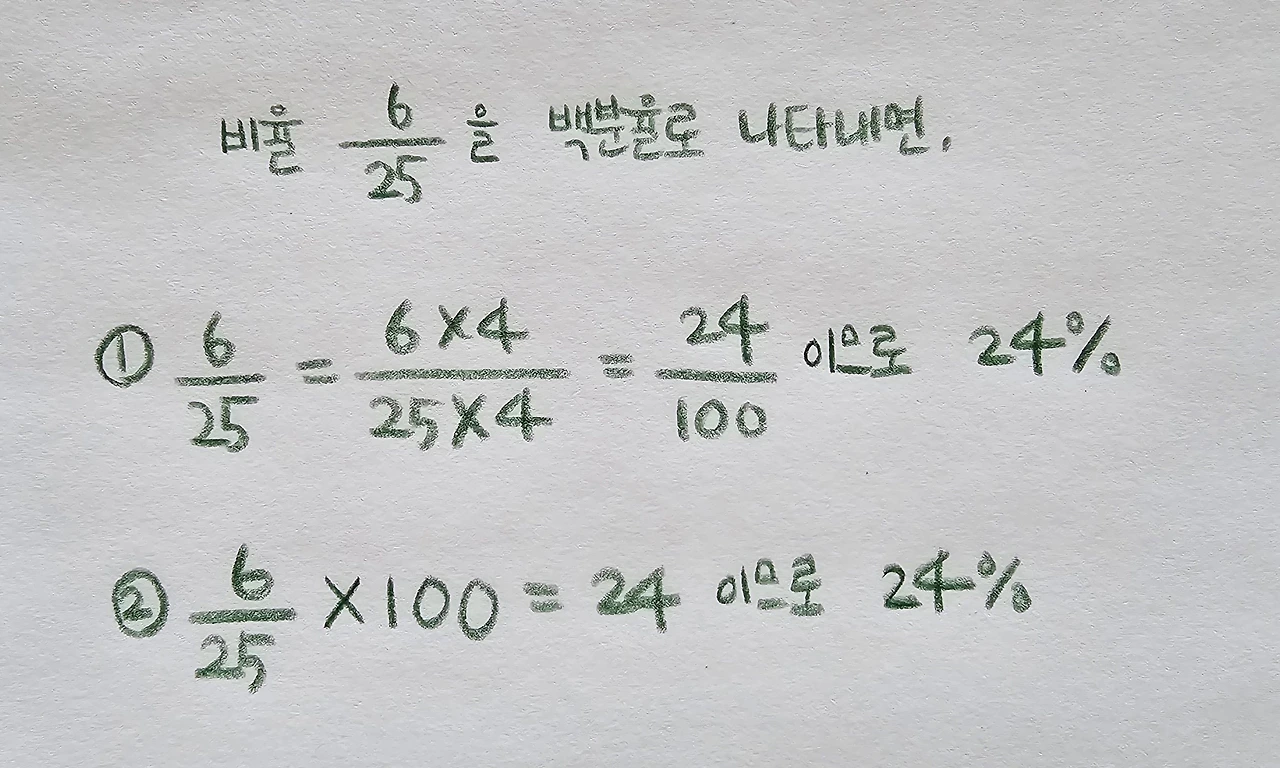 비율 6/25 을 백분율로 나타내면,
① 6/25 = 6×4/25×4 = 24/100 이므로 24%
② 6/25 ×100 = 24 이므로 24%